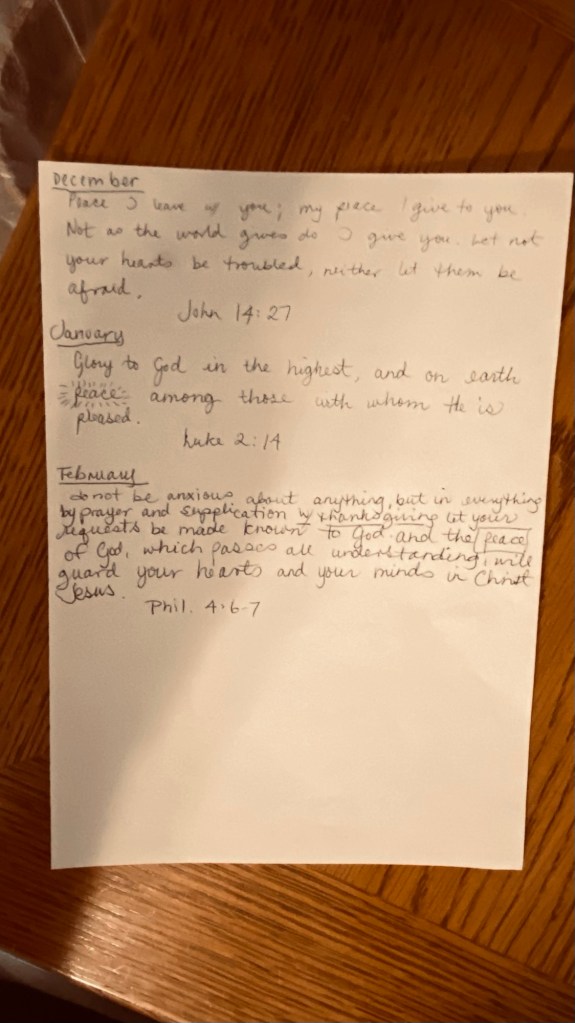 December
Peace I leave w/ you; my peace I give to you.
Not as the world gives do I give you. Let not
your hearts be troubled, neither let them be
afraid.
John 14:27
January
Glory to God in the highest, and on earth
peace among those with whom He is
pleased.
Luke 2:14
February
do not be anxious about anything, but in everything
by prayer and supplication w/ thanksgiving let your
requests be made known to God. and the peace
of God, which passes all understanding, will
guard your hearts and your minds in Christ
Jesus.
Phil. 4:6-7